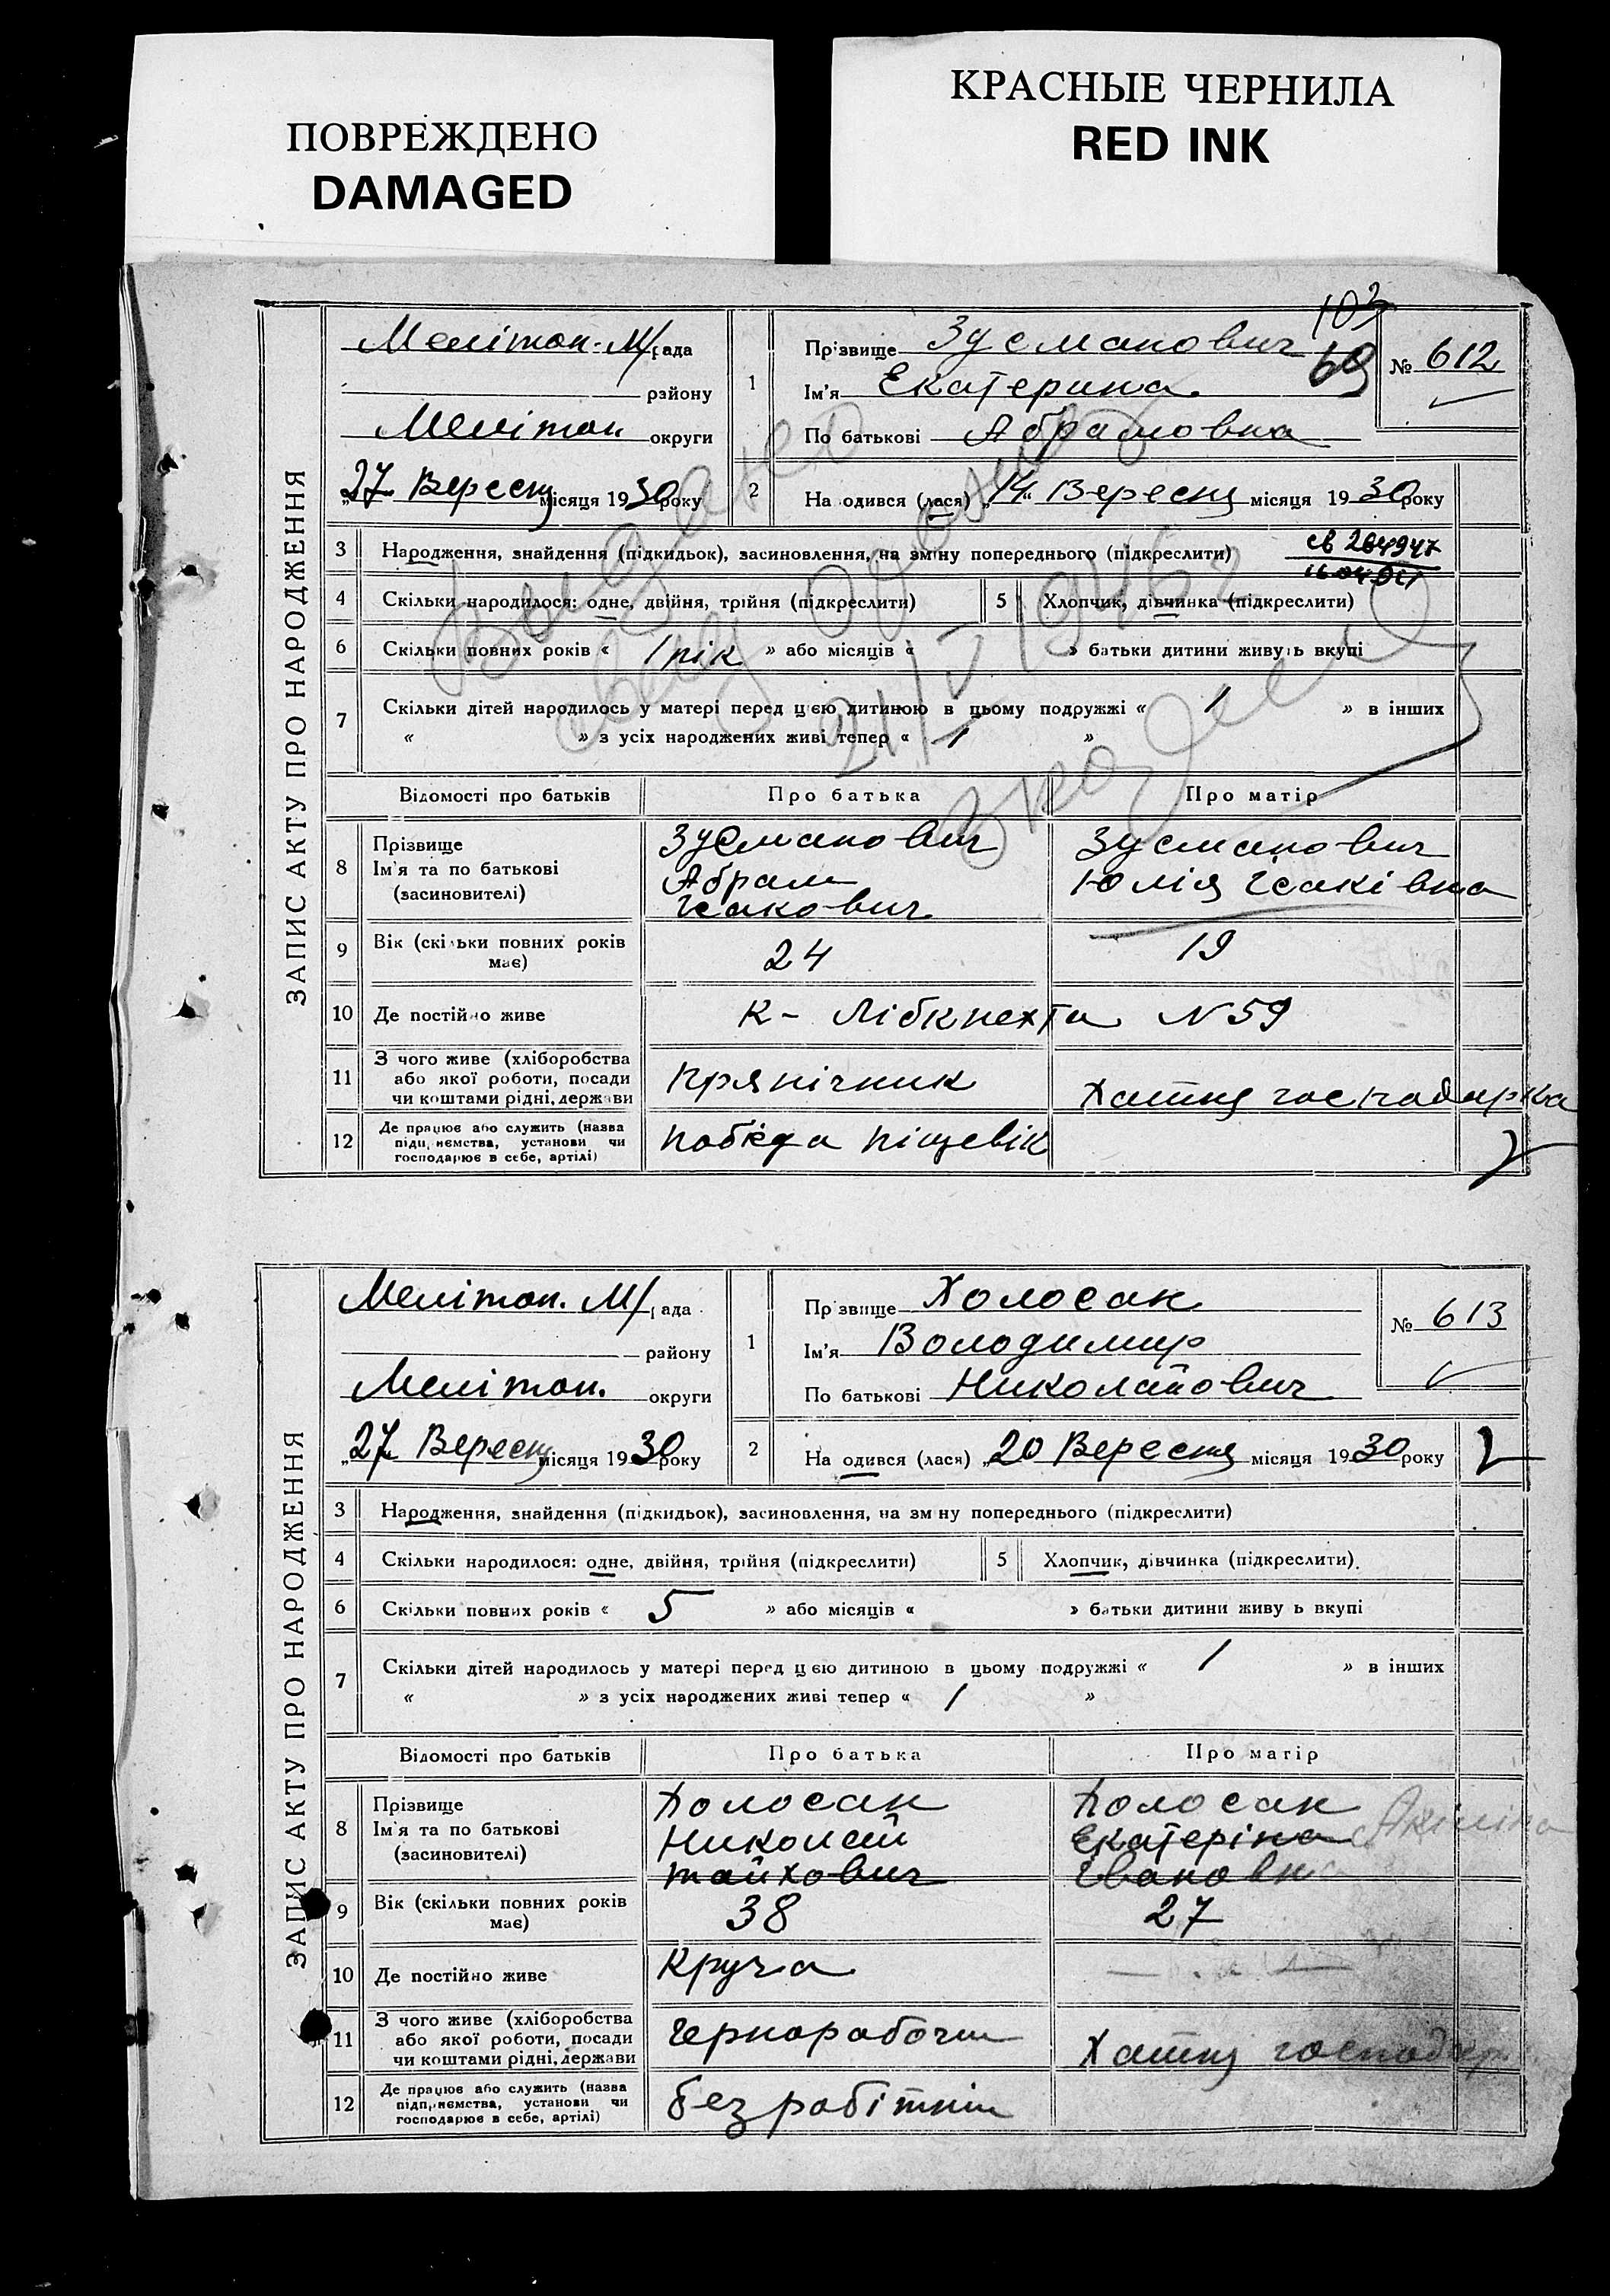 ПОВРЕЖДЕНО
DAMAGED
КРАСНЫЕ ЧЕРНИЛА
RED INK
ЗАПИС АКТУ ПРО НАРОДЖЕННЯ
Мелітоп. М/рада
району
Мелітоп округи
„27 Вересня місяця 1930 року
1
Прізвище Зусманович
Ім'я Екатерина
По батькові Абрамовна
103
69
№ 612
2 На одився (лася) „14“ Вересня місяця 1930 року
3 Народження, знайдення (підкидьок), засиновлення, на зміну попереднього (підкреслити)
св 264947
4 Скільки народилося: одне, двійня, трійня (підкреслити) 5 Хлопчик, дівчинка (підкреслити)
6 Скільки повних років « 1 рік » або місяців « » батьки дитини живуть вкупі
7 Скільки дітей народилось у матері перед цією дитиною в цьому подружжі « 1 » в інших
« » з усіх народжених живі тепер « 1 »
Відомості про батьків Про батька Про матір
8 Прізвище Ім'я та по батькові (засиновителі)
Зусманович Абрам Ісакович
Зусманович Юлія Ісаківна
9 Вік (скільки повних років має) 24 19
10 Де постійно живе К- Лібкнехта N 59
11 З чого живе (хліборобства або якої роботи, посади чи коштами рідні, держави
Прянічник Хатня господарка
12 Де працює або служить (назва підприємства, установи чи господарює в себе, артілі)
Побєда піщевік
ЗАПИС АКТУ ПРО НАРОДЖЕННЯ
Мелітоп. М/рада
району
Мелітоп. округи
„27 Вересня місяця 1930 року
1
Прізвище Холосак
Ім'я Володимир
По батькові Николайович
№ 613
2 На одився (лася) „20 Вересня місяця 1930 року
3 Народження, знайдення (підкидьок), засиновлення, на зміну попереднього (підкреслити)
4 Скільки народилося: одне, двійня, трійня (підкреслити) 5 Хлопчик, дівчинка (підкреслити).
6 Скільки повних років « 5 » або місяців « » батьки дитини живуть вкупі
7 Скільки дітей народилось у матері перед цією дитиною в цьому подружжі « 1 » в інших
« » з усіх народжених живі тепер « 1 »
Відомості про батьків Про батька Про матір
8 Прізвище Ім'я та по батькові (засиновителі)
Холосак Николай
Холосак Екатеріна Івановна
9 Вік (скільки повних років має) 38 27
10 Де постійно живе Круча
11 З чого живе (хліборобства або якої роботи, посади чи коштами рідні, держави
Чернорабочи Хатня господар
12 Де працює або служить (назва підприємства, установи чи господарює в себе, артілі)
безробітній